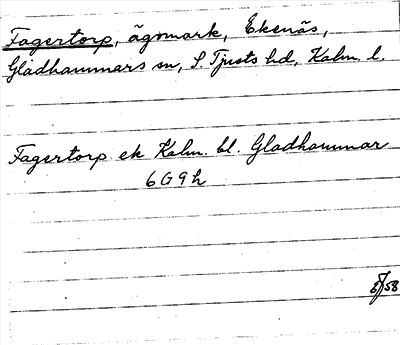 Fagertorp, ägomark, Ekenäs,
Gladhammars sn, S. Tjusts hd, Kalm. l.
Fagertorp ek Kalm. bl. Gladhammar
6G9h